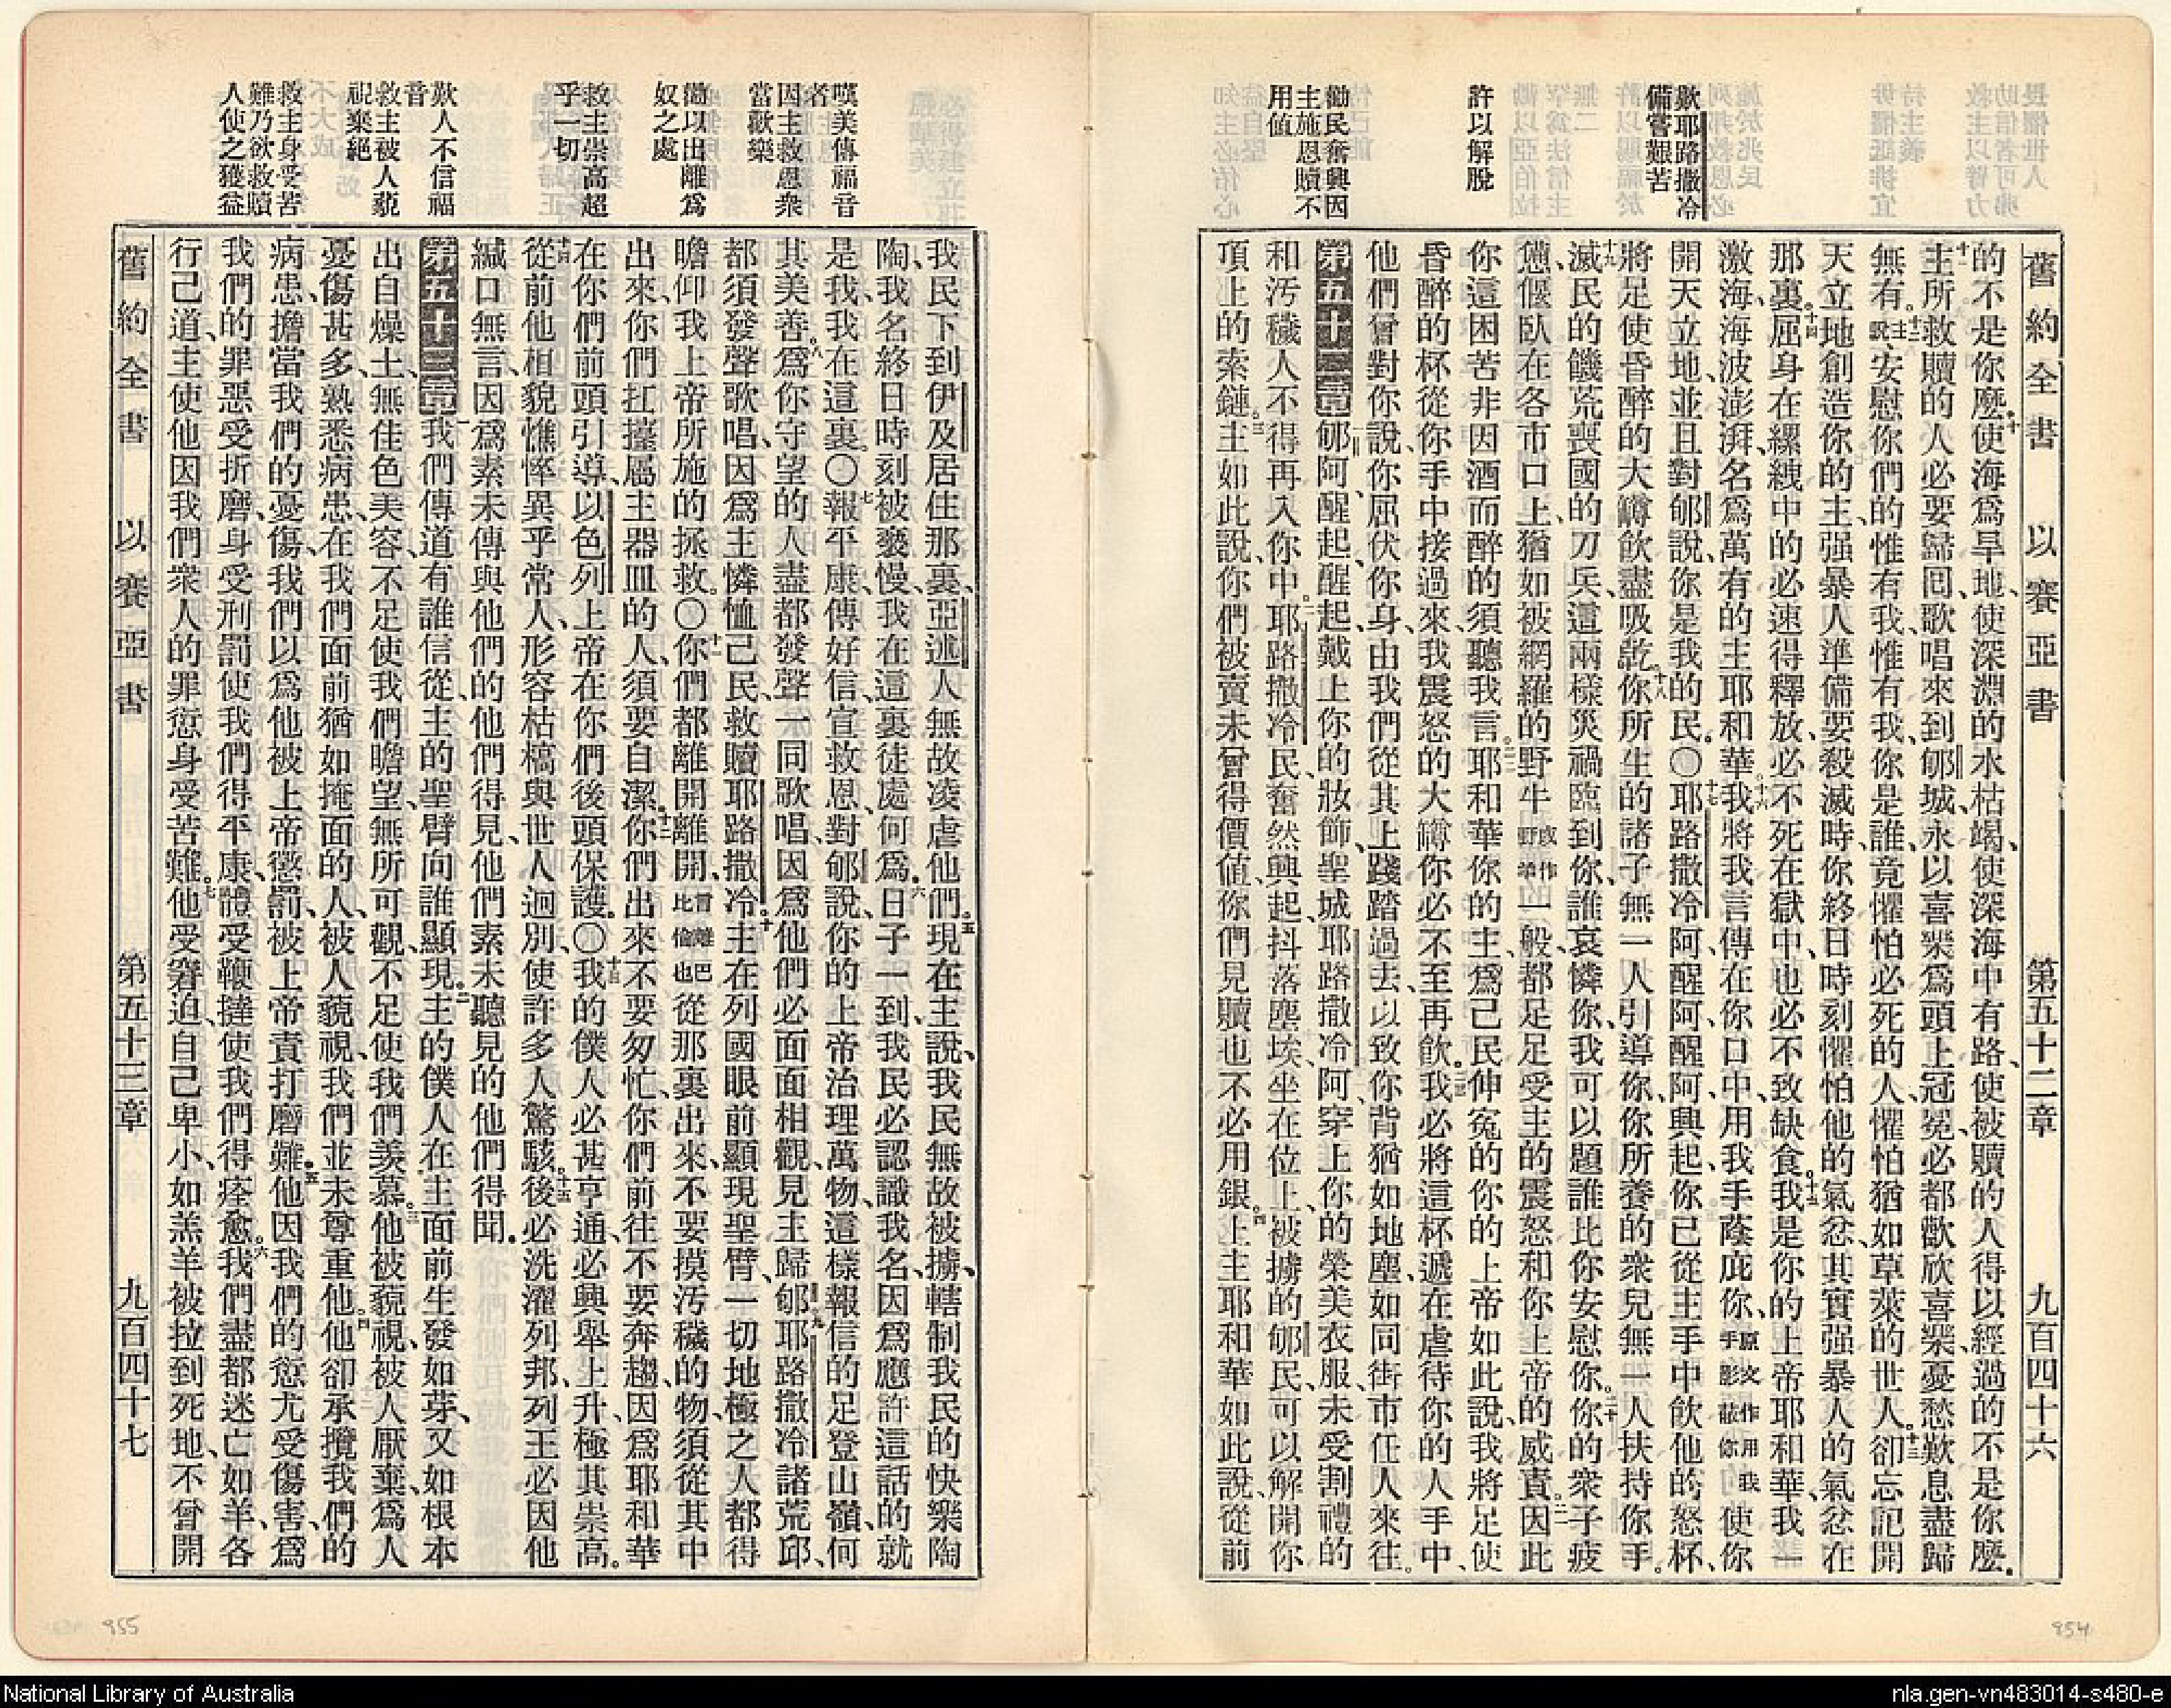 舊約全書 以賽亞書 第五十二章 九百四十六
的不是你麼、十使海爲旱地、使深淵的水枯竭、使深海中有路、使被贖的人得以經過的不是你麼。
十一主所救贖的人必要歸囘、歌唱來到郇城、永以喜樂爲頭上冠冕、必都歡欣喜樂、憂愁歎息盡歸
無有。十二主說、安慰你們的惟有我、惟有我、你是誰、竟懼怕必死的人、懼怕猶如草萊的世人。十三卻忘記開
天立地創造你的主、强暴人準備要殺滅時、你終日時刻懼怕他的氣忿、其實强暴人的氣忿在
那裏。十四屈身在縲絏中的必速得釋放、必不死在獄中、也必不致缺食。十五我是你的上帝耶和華、我一
激海、海波澎湃、名爲萬有的主耶和華。十六我將我言傳在你口中、用我手蔭庇你、原文作用我手影蔽你使你
開天立地、並且對郇說、你是我的民。〇十七耶路撒冷阿、醒阿、醒阿、興起、你已從主手中飲他的怒杯、
將足使昏醉的大罇飲盡吸乾。十八你所生的諸子無一人引導你、你所養的衆兒無一人扶持你手。
十九滅民的饑荒、喪國的刀兵、這兩樣災禍臨到你、誰哀憐你、我可以題誰比你安慰你。二十你的衆子疲
憊偃臥在各市口上、猶如被網羅的野牛或作野羊一般、都足足受主的震怒和你上帝的威責。二一因此
你這困苦非因酒而醉的、須聽我言。二二耶和華你的主、爲己民伸冤的你的上帝如此說、我將足使
昏醉的杯從你手中接過來、我震怒的大罇你必不至再飲。二三我必將這杯遞在虐待你的人手中、
他們曾對你說、你屈伏你身、由我們從其上踐踏過去、以致你背猶如地塵、如同街市任人來往。
第五十二章 郇阿、醒起、醒起、戴上你的妝飾、聖城耶路撒冷阿、穿上你的榮美衣服、未受割禮的
和汚穢人不得再入你中。二耶路撒冷民、奮然興起、抖落塵埃、坐在位上、被擄的郇民、可以解開你
項上的索鏈。三主如此說、你們被賣未曾得價值、你們見贖也不必用銀。四上主耶和華如此說、從前
歎耶路撒冷
備嘗艱苦
許以解脫
勸民奮興因
主施恩贖不
用値
我民下到伊及居住那裏、亞述人無故凌虐他們。五現在主說、我民無故被擄、轄制我民的快樂陶
陶、我名終日時刻被褻慢、我在這裏徒處何爲。六日子一到、我民必認識我名、因爲應許這話的就
是我、我在這裏。〇七報平康、傳好信、宣救恩、對郇說、你的上帝治理萬物、這樣報信的足登山嶺、何
其美善。八爲你守望的人盡都發聲、一同歌唱、因爲他們必面面相觀、見主歸郇。九耶路撒冷諸荒邱、
都須發聲歌唱、因爲主憐恤己民、救贖耶路撒冷。十主在列國眼前顯現聖臂、一切地極之人都得
瞻仰我上帝所施的拯救。〇十一你們都離開離開、言離巴比倫也從那裏出來、不要摸汚穢的物、須從其中
出來、你們扛擡屬主器皿的人、須要自潔。十二你們出來不要匆忙、你們前往不要奔趨、因爲耶和華
在你們前頭引導、以色列上帝在你們後頭保護。〇十三我的僕人必甚亨通、必興舉上升、極其崇高。
十四從前他相貌憔悴異乎常人、形容枯槁與世人迥別、使許多人驚駭。十五後必洗濯列邦、列王必因他
緘口無言、因爲素未傳與他們的他們得見、他們素未聽見的他們得聞。
第五十三章 一我們傳道有誰信從、主的聖臂向誰顯現。二主的僕人在主面前生發如芽、又如根本
出自燥土、無佳色美容、不足使我們瞻望、無所可觀、不足使我們羨慕。三他被藐視、被人厭棄、爲人
憂傷甚多、熟悉病患、在我們面前猶如掩面的人、被人藐視、我們並未尊重他。四他卻承攬我們的
病患、擔當我們的憂傷、我們以爲他被上帝懲罰、被上帝責打磨難。五他因我們的愆尤受傷害、爲
我們的罪惡受折磨、身受刑罰使我們得平康、體受鞭撻使我們得痊愈。六我們盡都迷亡如羊、各
行己道、主使他因我們衆人的罪愆身受苦難。七他受窘迫、自己卑小、如羔羊被拉到死地、不曾開
舊約全書 以賽亞書 第五十三章 九百四十七
嘆美傳福音
者
因主救恩衆
當歡樂
勸以出離爲
奴之處
救主崇高超
乎一切
歎人不信福
音
救主被人藐
視棄絕
救主身受苦
難乃欲救贖
人使之獲益
954
955
National Library of Australia
nla.gen-vn483014-s480-e